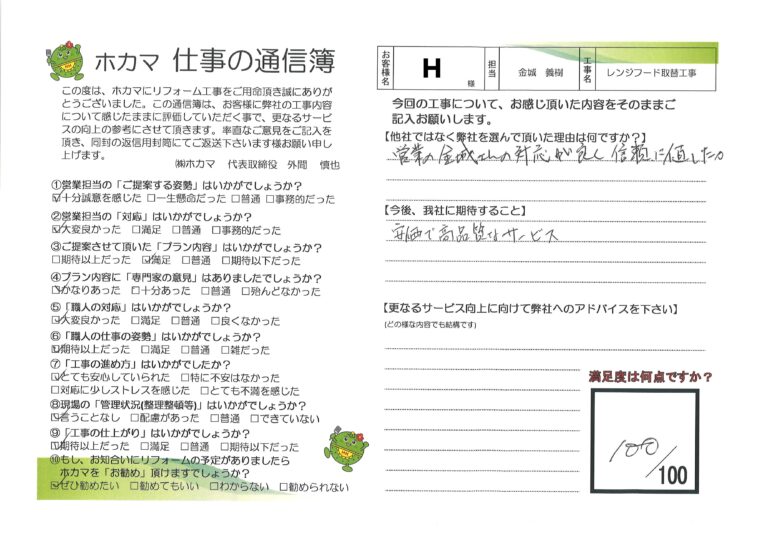 ホカマ 仕事の通信簿
この度は、ホカマにリフォーム工事をご用命頂き誠にありが
とうございました。この通信簿は、お客様に弊社の工事内容
について感じたままに評価していただく事で、更なるサービ
スの向上の参考にさせて頂きます。率直なご意見をご記入を
頂き、同封の返信用封筒にてご返送下さいます様お願い申し
上げます。
㈱ホカマ 代表取締役 外間 慎也
①営業担当の「ご提案する姿勢」はいかがでしょうか?
☑十分誠意を感じた □一生懸命だった □普通 □事務的だった
②営業担当の「対応」はいかがでしょうか?
☑大変良かった □満足 □普通 □事務的だった
③ご提案させて頂いた「プラン内容」はいかがでしょうか?
□期待以上だった ☑満足 □普通 □期待以下だった
④プラン内容に「専門家の意見」はありましたでしょうか?
☑かなりあった □十分あった □普通 □殆んどなかった
⑤「職人の対応」はいかがでしょうか?
☑大変良かった □満足 □普通 □良くなかった
⑥「職人の仕事の姿勢」はいかがでしょうか?
☑期待以上だった □満足 □普通 □雑だった
⑦「工事の進め方」はいかがでしたか?
☑とても安心していられた □特に不安はなかった
□対応に少しストレスを感じた □とても不満を感じた
⑧現場の「管理状況(整理整頓等)」はいかがでしょうか?
☑言うことなし □配慮があった □普通 □できていない
⑨「工事の仕上がり」はいかがでしょうか?
☑期待以上だった □満足 □普通 □期待以下だった
⑩もし、お知合いにリフォームの予定がありましたら
ホカマを「お勧め」頂けますでしょうか?
☑ぜひ勧めたい □勧めてもいい □わからない □勧められない
お客様名 H 様 担当 金城 義樹 工事名 レンジフード取替工事
今回の工事について、お感じ頂いた内容をそのままご
記入お願いします。
【他社ではなく弊社を選んで頂いた理由は何ですか?】
営業の金城さんの対応が良く信頼に値したから
【今後、我社に期待すること】
安価で高品質なサービス
【更なるサービス向上に向けて弊社へのアドバイスを下さい】
(どの様な内容でも結構です)
満足度は何点ですか?
100/100